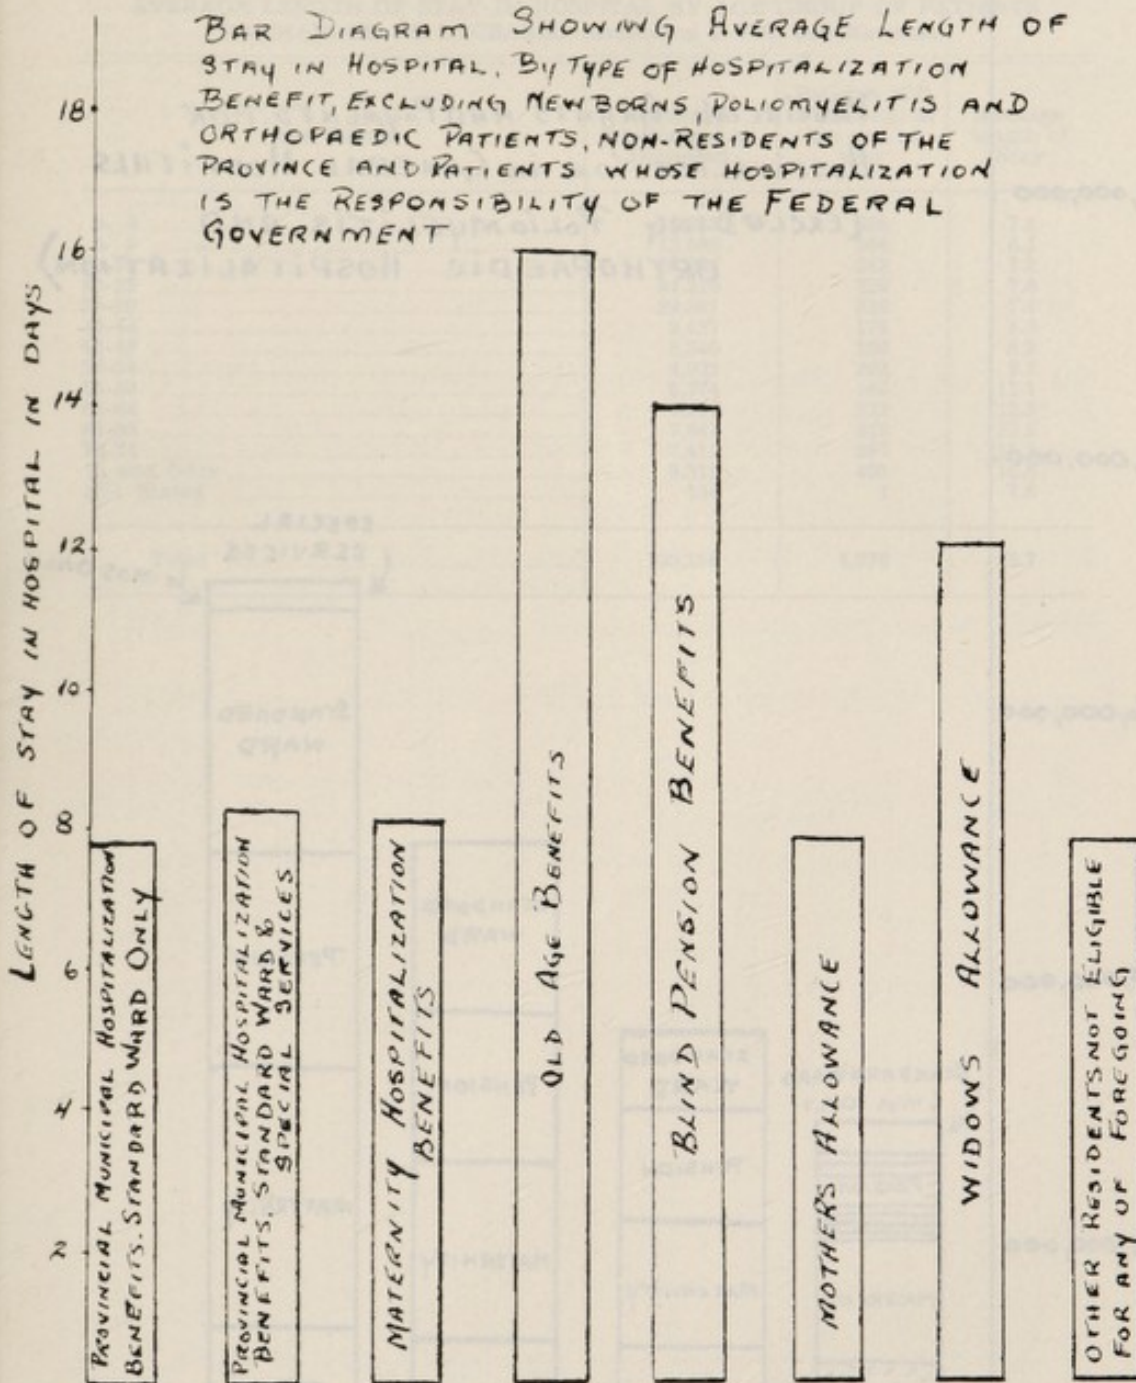 BAR DIAGRAM SHOWING AVERAGE LENGTH OF
STAY IN HOSPITAL, BY TYPE OF HOSPITALIZATION
BENEFIT, EXCLUDING NEWBORNS, POLIOMYELITIS AND
ORTHOPAEDIC PATIENTS, NON-RESIDENTS OF THE
PROVINCE AND PATIENTS WHOSE HOSPITALIZATION
IS THE RESPONSIBILITY OF THE FEDERAL
GOVERNMENT
LENGTH OF STAY IN HOSPITAL IN DAYS
18
16
14
12
10
8
6
4
2
PROVINCIAL MUNICIPAL HOSPITALIZATION
BENEFITS. STANDARD WARD ONLY
PROVINCIAL MUNICIPAL HOSPITALIZATION
BENEFITS. STANDARD WARD &
SPECIAL SERVICES
MATERNITY HOSPITALIZATION
BENEFITS
OLD AGE BENEFITS
BLIND PENSION BENEFITS
MOTHERS ALLOWANCE
WIDOWS ALLOWANCE
OTHER RESIDENTS NOT ELIGIBLE
FOR ANY OF FOREGOING